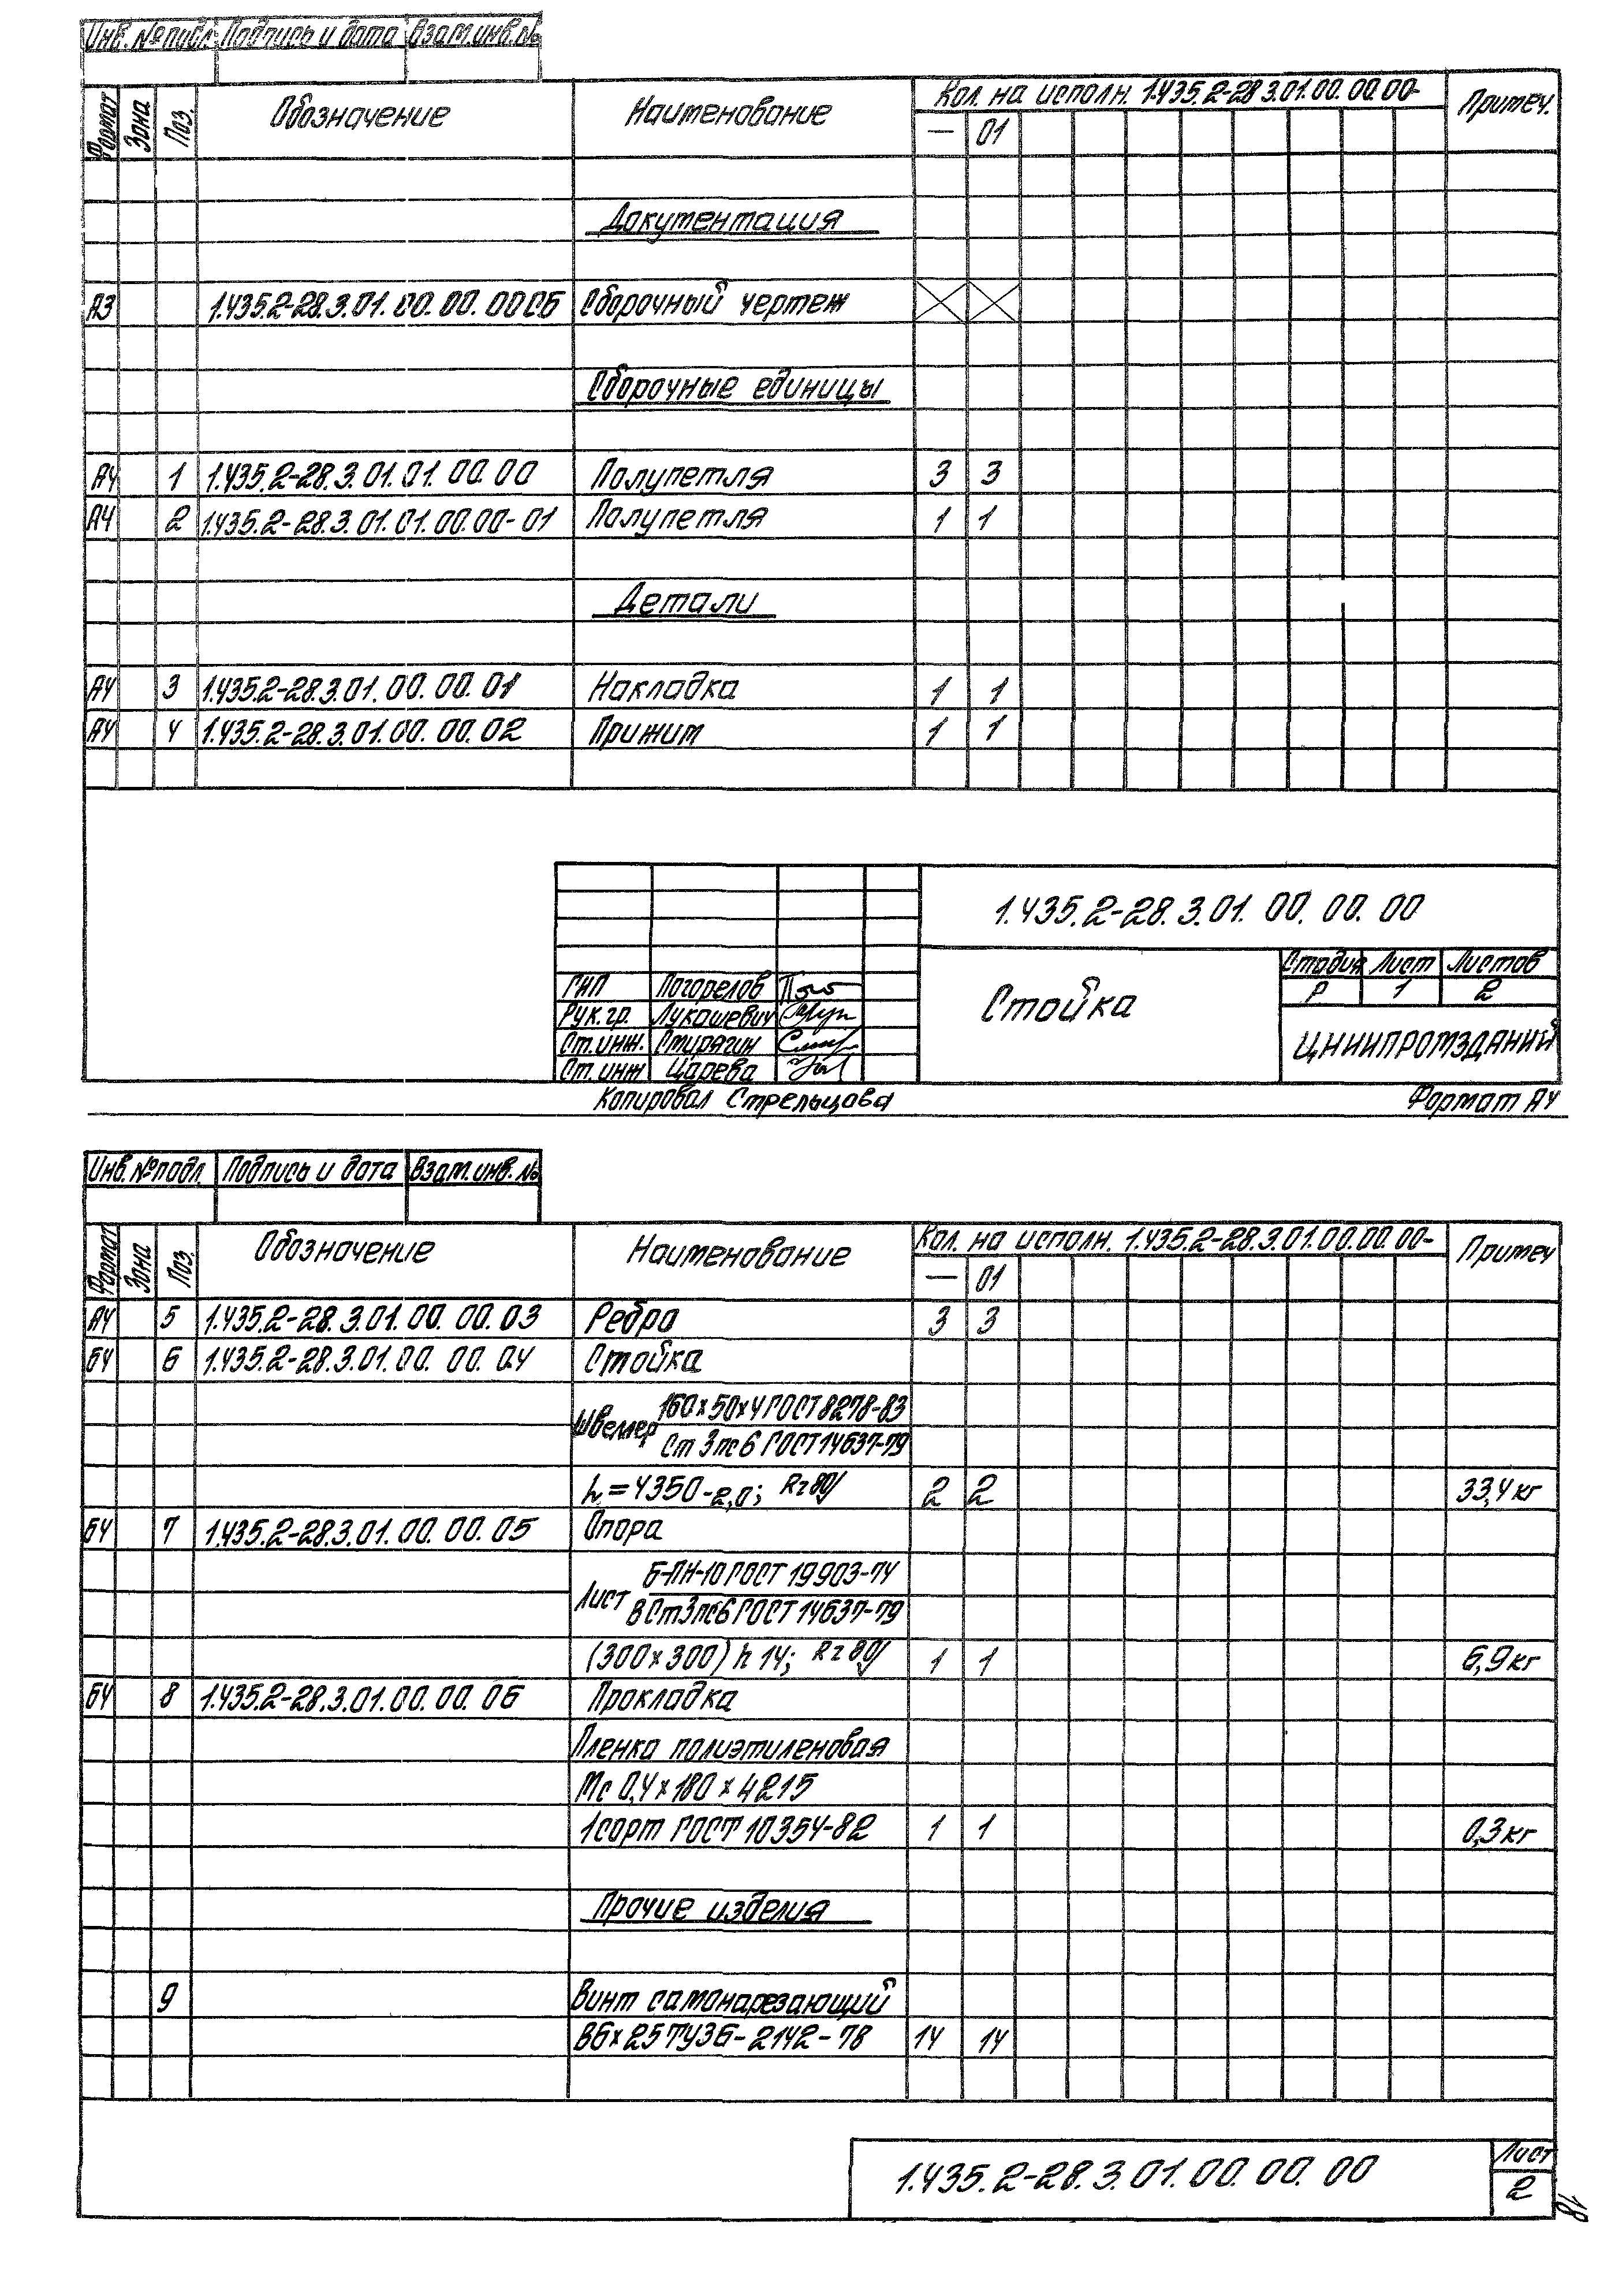 Инв. № подл. Подпись и дата Взам. инв. №
Формат Зона Поз. Обозначение Наименование Кол. на исполн. 1.435.2-28.3.01.00.00.00- Примеч.
— 01
Документация
А3 1.435.2-28.3.01.00.00.00СБ Сборочный чертеж
Сборочные единицы
А4 1 1.435.2-28.3.01.01.00.00 Полупетля 3 3
А4 2 1.435.2-28.3.01.01.00.00-01 Полупетля 1 1
Детали
А4 3 1.435.2-28.3.01.00.00.01 Накладка 1 1
А4 4 1.435.2-28.3.01.00.00.02 Прижим 1 1
1.435.2-28.3.01.00.00.00
Стойка
Стадия Лист Листов
Р 1 2
ЦНИИПРОМЗДАНИЙ
ГИП Погорелов
Рук. гр. Лукашевич
Ст. инж. Стирягин
Ст. инж Царева
Копировал Стрельцова Формат А4
Инв. № подл. Подпись и дата Взам. инв. №
Формат Зона Поз. Обозначение Наименование Кол. на исполн. 1.435.2-28.3.01.00.00.00- Примеч
— 01
А4 5 1.435.2-28.3.01.00.00.03 Ребро 3 3
БЧ 6 1.435.2-28.3.01.00.00.04 Стойка
Швеллер 160×50×4 ГОСТ 8278-83
Ст 3пс6 ГОСТ 14637-79
h=4350-2,0; Rz80 2 2 33,4 кг
БЧ 7 1.435.2-28.3.01.00.00.05 Опора
Лист Б-ПН-10 ГОСТ 19903-74
ВСт3пс6 ГОСТ 14637-79
(300×300) h 14; Rz80 1 1 6,9 кг
БЧ 8 1.435.2-28.3.01.00.00.06 Прокладка
Пленка полиэтиленовая
Мс 0,4×180×4215
1 сорт ГОСТ 10354-82 1 1 0,3 кг
Прочие изделия
9 Винт самонарезающий
В6×25 ТУ36-2142-78 14 14
1.435.2-28.3.01.00.00.00
Лист
2
18